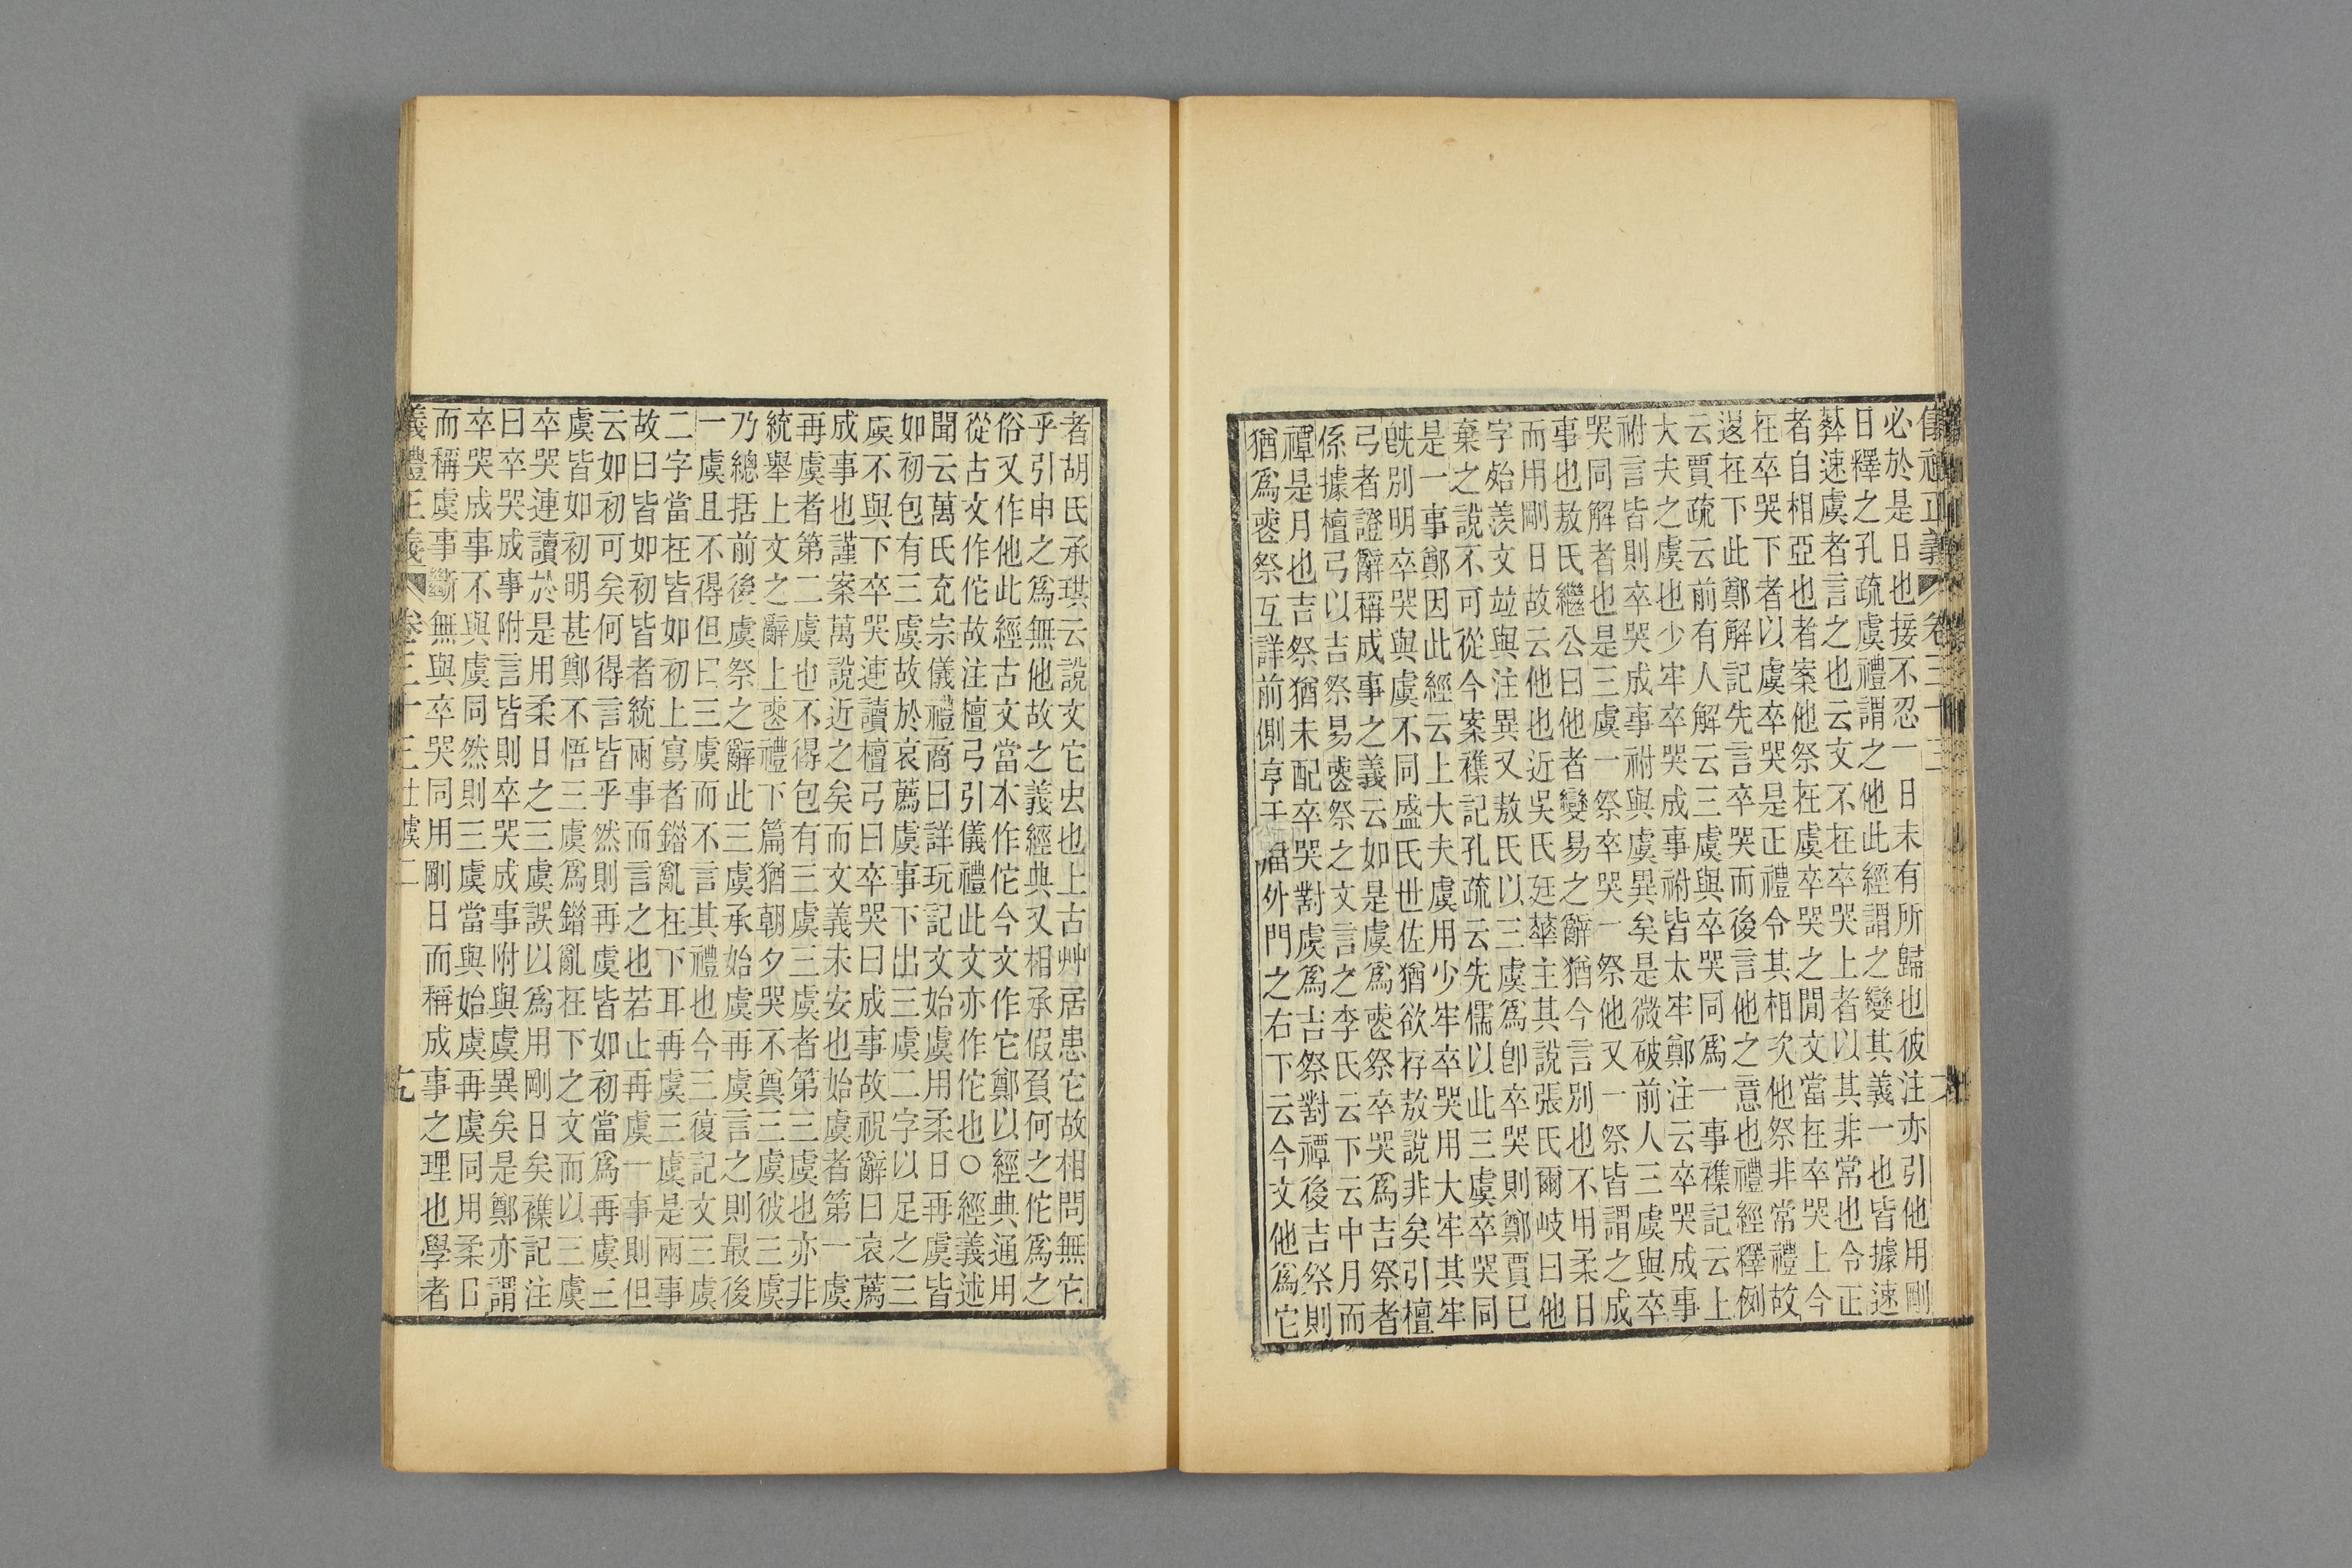 儀禮正義 卷三十三
必於是日也接不忍一日未有所歸也彼注亦引他用剛
日釋之孔疏虞禮謂之他此經謂之變其義一也皆據速
葬速虞者言之也云文不在卒哭上者以其非常也令正
者自相亞也者案他祭在虞卒哭之閒文當在卒哭上今
在卒哭下者以虞卒哭是正禮令其相次他祭非常禮故
退在下此鄭解記先言卒哭而後言他之意也禮經釋例
云賈疏云前有人解云三虞與卒哭同爲一事襍記云上
大夫之虞也少牢卒哭成事祔皆太牢鄭注云卒哭成事
祔言皆則卒哭成事祔與虞異矣是微破前人三虞與卒
哭同解者也是三虞一祭卒哭一祭他又一祭皆謂之成
事也敖氏繼公曰他者變易之辭猶今言別也不用柔日
而用剛日故云他也近吳氏廷華主其說張氏爾岐曰他
字始羨文竝與注異又敖氏以三虞爲卽卒哭則鄭賈已
棄之說不可從今案襍記孔疏云先儒以此三虞卒哭同
是一事鄭因此經云上大夫虞用少牢卒哭用大牢其牢
旣別明卒哭與虞不同盛氏世佐猶欲存敖說非矣引檀
弓者證辭稱成事之義云如是虞爲喪祭卒哭爲吉祭者
係據檀弓以吉祭易喪祭之文言之李氏云下云中月而
禫是月也吉祭猶未配卒哭對虞爲吉祭對禫後吉祭則
猶爲喪祭互詳前側亨于廟外門之右下云今文他爲它
者胡氏承珙云說文它虫也上古艸居患它故相問無它
乎引申之爲無他故之義經典又相承假負何之佗爲之
俗又作他此經古文當本作佗今文作它鄭以經典通用
從古文作佗故注檀弓引儀禮此文亦作佗也○經義述
聞云萬氏充宗儀禮商曰詳玩記文始虞用柔日再虞皆
如初包有三虞故於哀薦虞事下出三虞二字以足之三
虞不與下卒哭連讀檀弓曰卒哭曰成事故祝辭曰哀薦
成事也謹案萬說近之矣而文義未安也始虞者第一虞
再虞者第二虞也不得包有三虞三虞者第三虞也亦非
統舉上文之辭上喪禮下篇猶朝夕哭不奠三虞彼三虞
乃總括前後虞祭之辭此三虞承始虞再虞言之則最後
一虞且不得但曰三虞而不言其禮也今三復記文三虞
二字當在皆如初上寫者錯亂在下耳再虞三虞是兩事
故曰皆如初皆者統兩事而言之也若止再虞一事則但
云如初可矣何得言皆乎然則再虞皆如初當爲再虞三
虞皆如初明甚鄭不悟三虞爲錯亂在下之文而以三虞
卒哭連讀於是用柔日之三虞誤以爲用剛日矣襍記注
曰卒哭成事附言皆則卒哭成事附與虞異矣是鄭亦謂
卒哭成事不與虞同然則三虞當與始虞再虞同用柔日
而稱虞事斷無與卒哭同用剛日而稱成事之理也學者
儀禮正義 卷三十三 士虞二